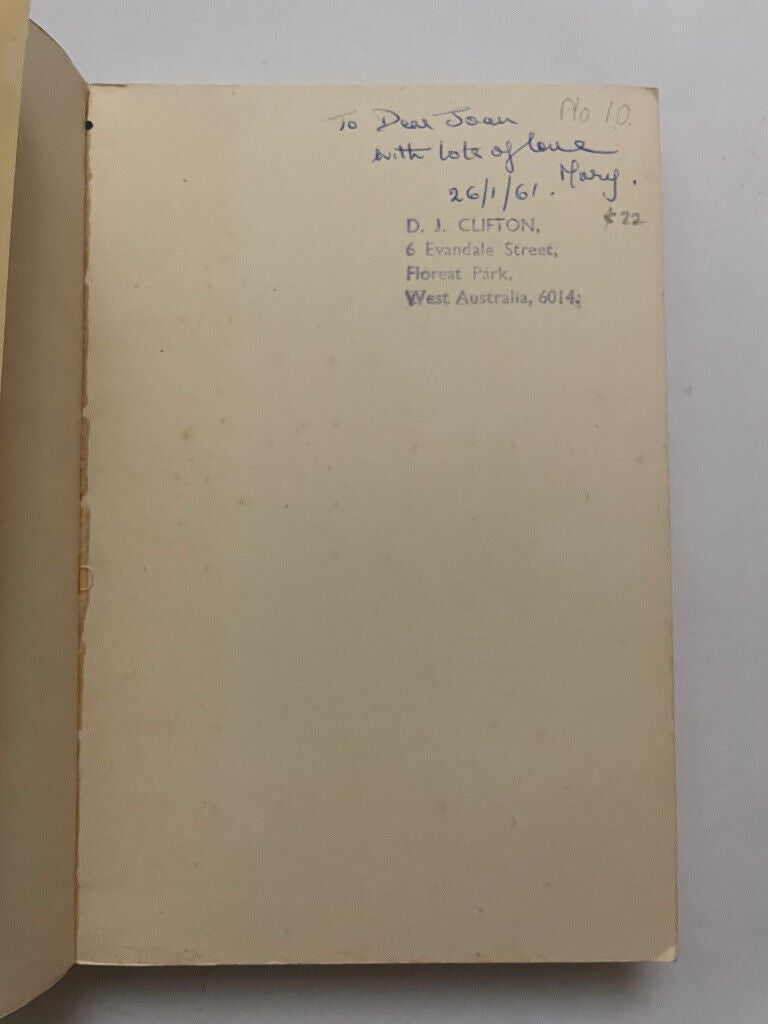 No 10.
To Dear Joan
with lots of love
Mary.
26/1/61.
$22
D. J. CLIFTON,
6 Evandale Street,
Floreat Park,
West Australia, 6014;